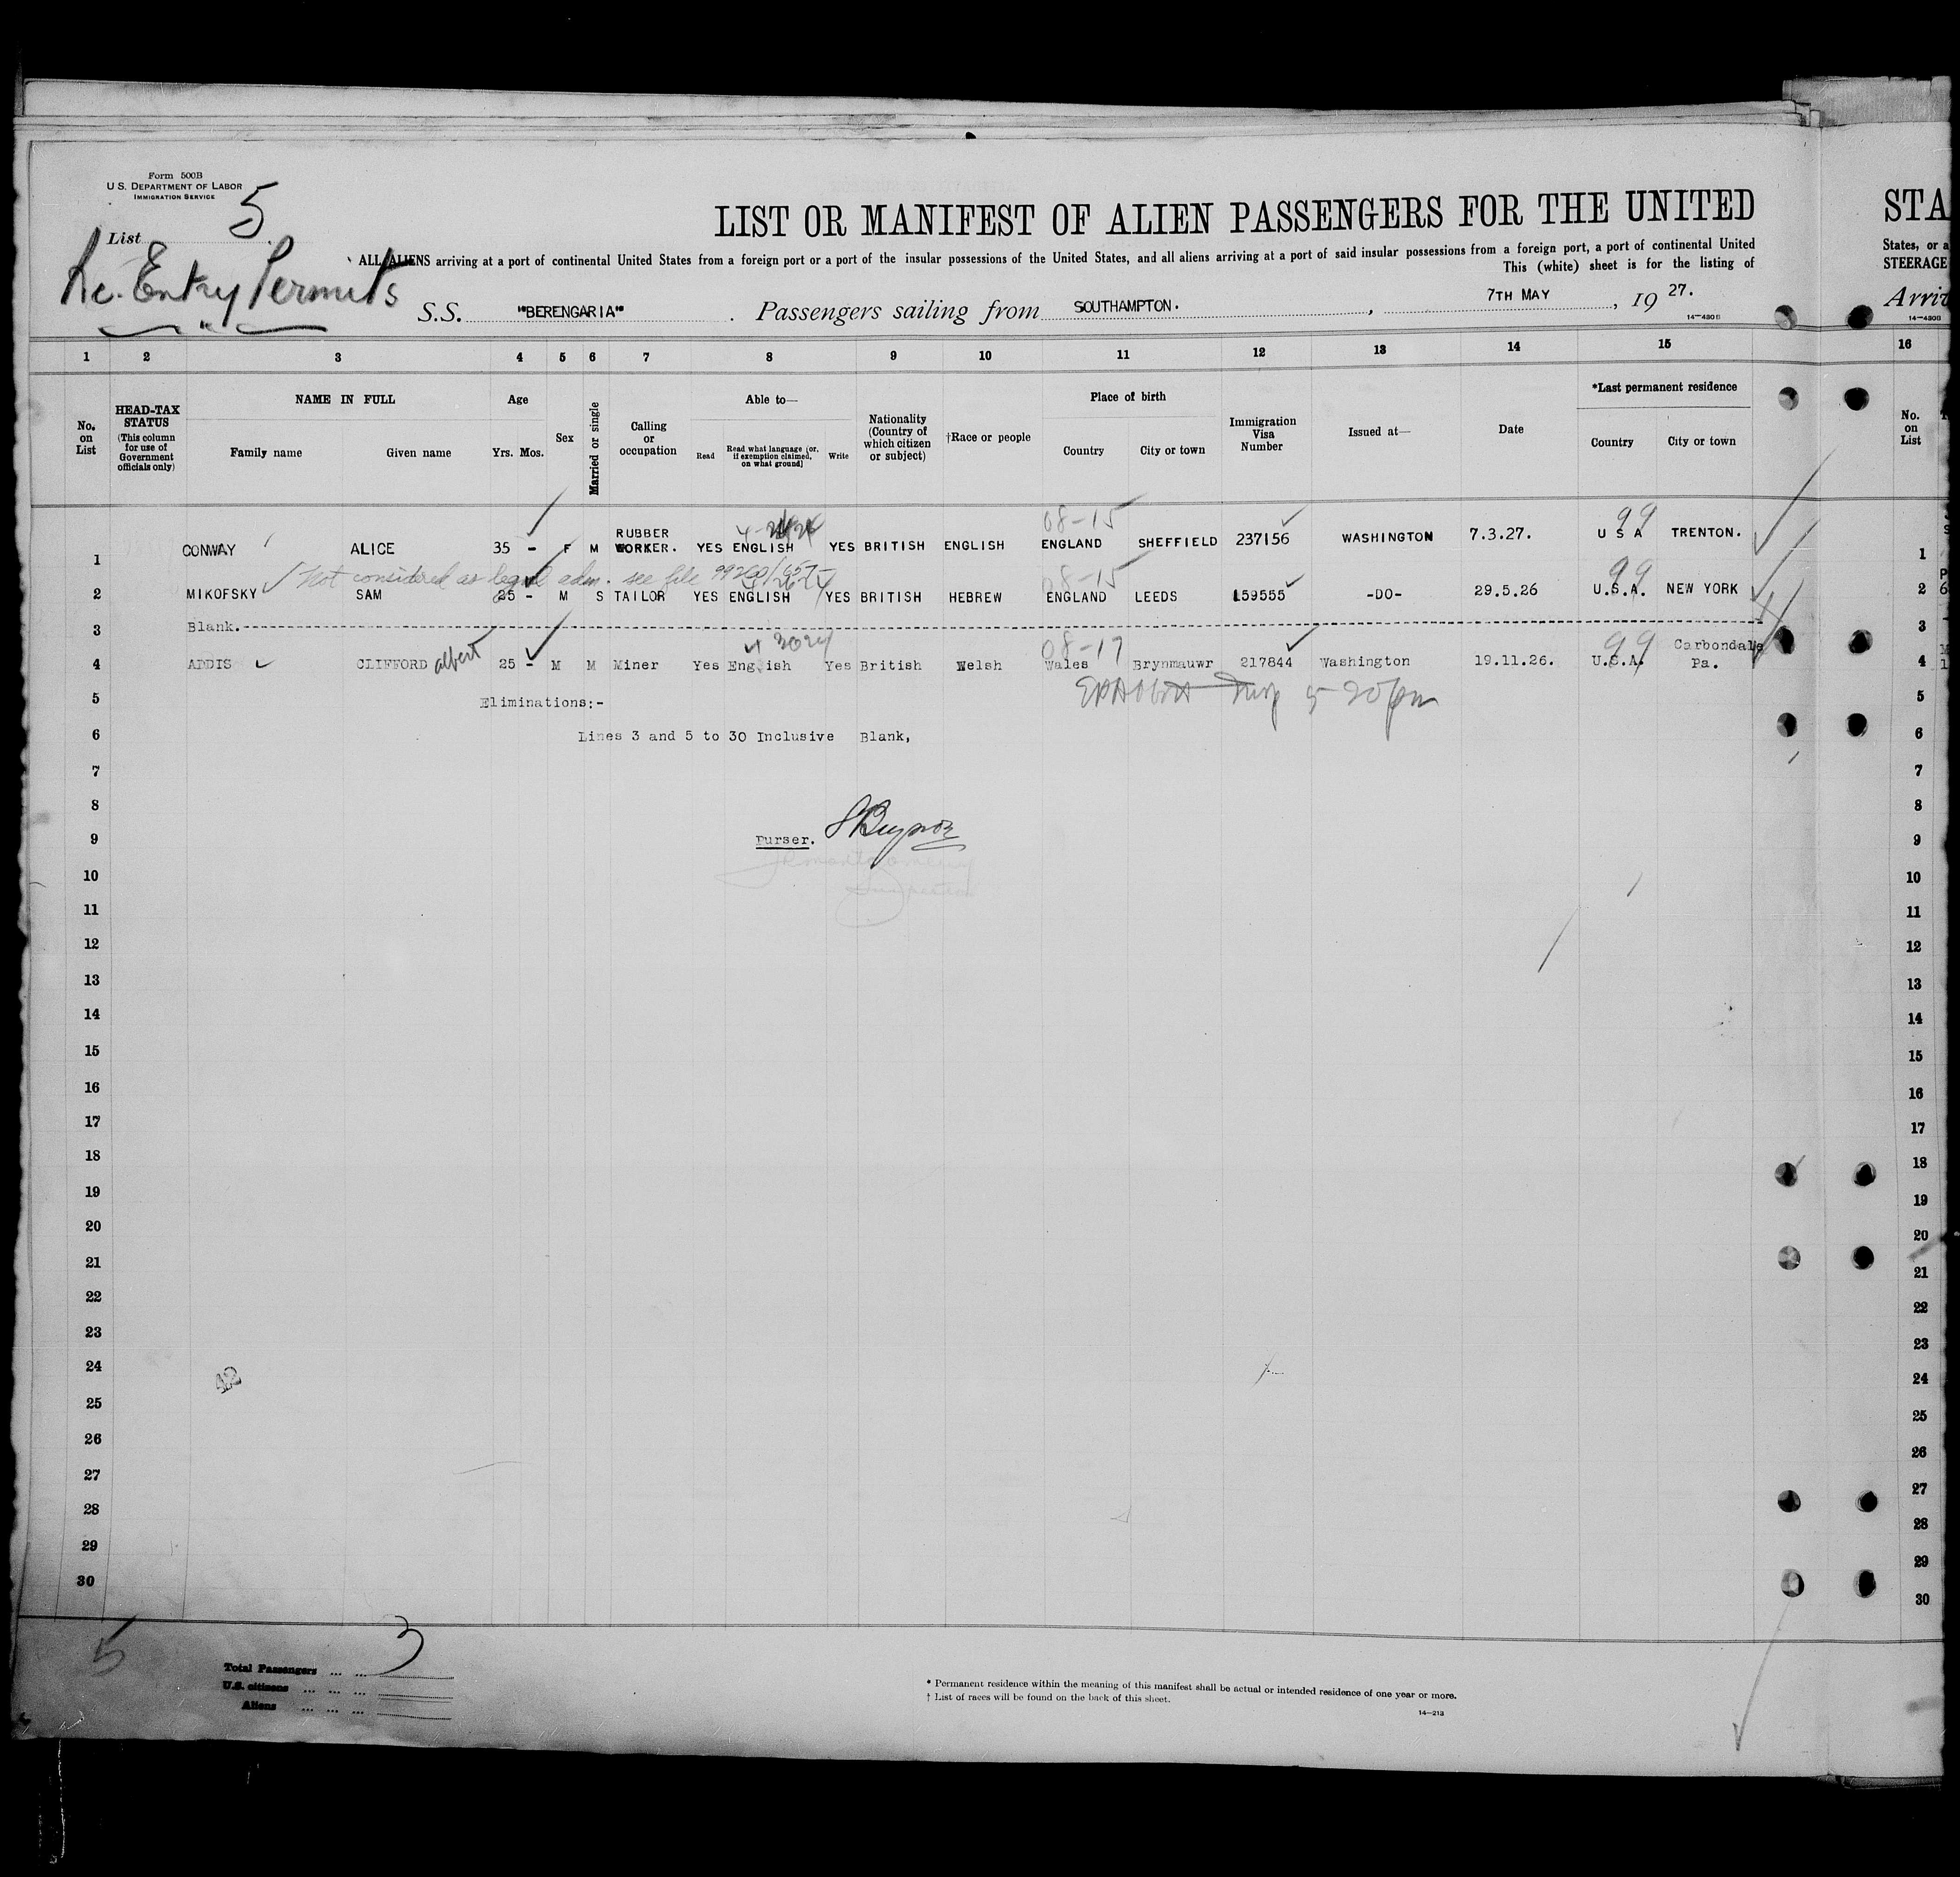 Form 500B
U. S. DEPARTMENT OF LABOR
IMMIGRATION SERVICE
List 5
Re. Entry Permits
LIST OR MANIFEST OF ALIEN PASSENGERS FOR THE UNITED
STA
ALL ALIENS arriving at a port of continental United States from a foreign port or a port of the insular possessions of the United States, and all aliens arriving at a port of said insular possessions from a foreign port, a port of continental United
States, or a
This (white) sheet is for the listing of
STEERAGE
S.S. "BERENGARIA" . Passengers sailing from SOUTHAMPTON. , 7TH MAY , 19 27.
14—430B
14—430B
1 2 3 4 5 6 7 8 9 10 11 12 13 14 15 16
No. on List
HEAD-TAX STATUS (This column for use of Government officials only)
NAME IN FULL
Family name Given name
Age
Yrs. Mos.
Sex
Married or single
Calling or occupation
Able to—
Read Read what language (or, if exemption claimed, on what ground) Write
Nationality (Country of which citizen or subject)
†Race or people
Place of birth
Country City or town
Immigration Visa Number
Issued at—
Date
*Last permanent residence
Country City or town
No. on List
08-15 99
1 CONWAY ALICE 35 - F M RUBBER WORKER. YES ENGLISH YES BRITISH ENGLISH ENGLAND SHEFFIELD 237156 WASHINGTON 7.3.27. U S A TRENTON. 1
Not considered as legal adm. see file
08-15 99
2 MIKOFSKY SAM 25 - M S TAILOR YES ENGLISH YES BRITISH HEBREW ENGLAND LEEDS 159555 -DO- 29.5.26 U.S.A. NEW YORK 2
3 Blank. 3
08-17 99
4 ADDIS CLIFFORD albert 25 - M M Miner Yes English Yes British Welsh Wales Brynmauwr 217844 Washington 19.11.26. U.S.A. Carbondale Pa. 4
5 Eliminations:- 5
5-20 pm
6 Lines 3 and 5 to 30 Inclusive Blank, 6
7 7
8 8
9 Purser. 9
10 10
11 11
12 12
13 13
14 14
15 15
16 16
17 17
18 18
19 19
20 20
21 21
22 22
23 23
24 24
42
25 25
26 26
27 27
28 28
29 29
30 30
5
Total Passengers ... ... 3
U.S. citizens ... ... ...
Aliens ... ... ...
* Permanent residence within the meaning of this manifest shall be actual or intended residence of one year or more.
† List of races will be found on the back of this sheet.
14—213